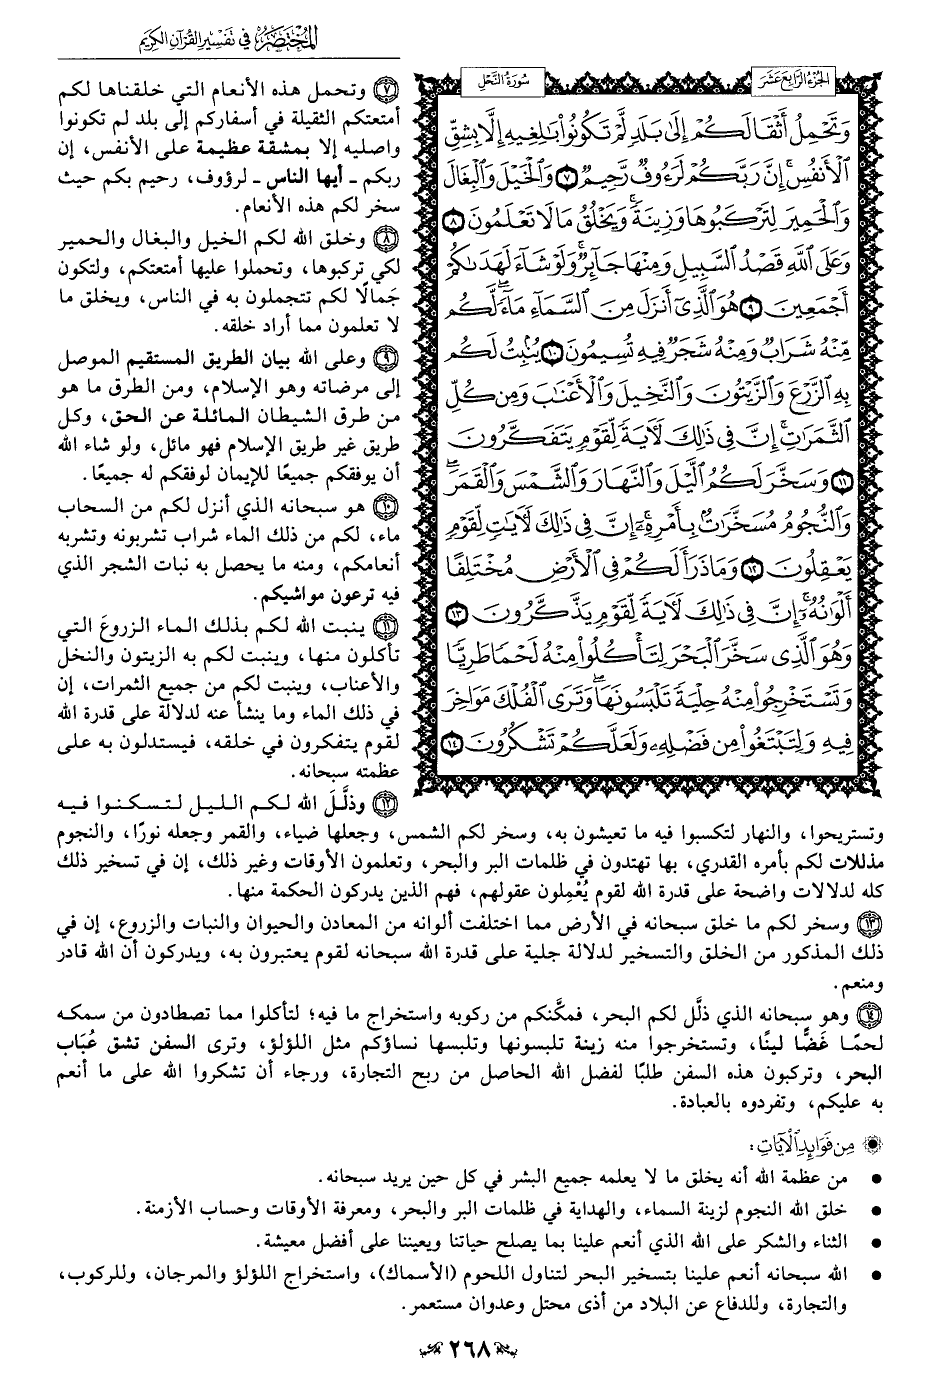 المختصر في تفسير القرآن الكريم
الجزء الرابع عشر
سورة النحل
وَتَحْمِلُ أَثْقَالَكُمْ إِلَىٰ بَلَدٍ لَّمْ تَكُونُوا۟ بَـٰلِغِيهِ إِلَّا بِشِقِّ
ٱلْأَنفُسِ ۚ إِنَّ رَبَّكُمْ لَرَءُوفٌ رَّحِيمٌ ٧ وَٱلْخَيْلَ وَٱلْبِغَالَ
وَٱلْحَمِيرَ لِتَرْكَبُوهَا وَزِينَةً ۚ وَيَخْلُقُ مَا لَا تَعْلَمُونَ ٨
وَعَلَى ٱللَّهِ قَصْدُ ٱلسَّبِيلِ وَمِنْهَا جَآئِرٌ ۚ وَلَوْ شَآءَ لَهَدَىٰكُمْ
أَجْمَعِينَ ٩ هُوَ ٱلَّذِىٓ أَنزَلَ مِنَ ٱلسَّمَآءِ مَآءً ۖ لَّكُم
مِّنْهُ شَرَابٌ وَمِنْهُ شَجَرٌ فِيهِ تُسِيمُونَ ١٠ يُنۢبِتُ لَكُم
بِهِ ٱلزَّرْعَ وَٱلزَّيْتُونَ وَٱلنَّخِيلَ وَٱلْأَعْنَـٰبَ وَمِن كُلِّ
ٱلثَّمَرَٰتِ ۗ إِنَّ فِى ذَٰلِكَ لَـَٔايَةً لِّقَوْمٍ يَتَفَكَّرُونَ
١١ وَسَخَّرَ لَكُمُ ٱلَّيْلَ وَٱلنَّهَارَ وَٱلشَّمْسَ وَٱلْقَمَرَ ۖ
وَٱلنُّجُومُ مُسَخَّرَٰتٌۢ بِأَمْرِهِۦٓ ۗ إِنَّ فِى ذَٰلِكَ لَـَٔايَـٰتٍ لِّقَوْمٍ
يَعْقِلُونَ ١٢ وَمَا ذَرَأَ لَكُمْ فِى ٱلْأَرْضِ مُخْتَلِفًا
أَلْوَٰنُهُۥٓ ۗ إِنَّ فِى ذَٰلِكَ لَـَٔايَةً لِّقَوْمٍ يَذَّكَّرُونَ ١٣
وَهُوَ ٱلَّذِى سَخَّرَ ٱلْبَحْرَ لِتَأْكُلُوا۟ مِنْهُ لَحْمًا طَرِيًّا
وَتَسْتَخْرِجُوا۟ مِنْهُ حِلْيَةً تَلْبَسُونَهَا ۖ وَتَرَى ٱلْفُلْكَ مَوَاخِرَ
فِيهِ وَلِتَبْتَغُوا۟ مِن فَضْلِهِۦ وَلَعَلَّكُمْ تَشْكُرُونَ ١٤
٧ وتحمل هذه الأنعام التي خلقناها لكم
أمتعتكم الثقيلة في أسفاركم إلى بلد لم تكونوا
واصليه إلا بمشقة عظيمة على الأنفس، إن
ربكم - أيها الناس - لرؤوف، رحيم بكم حيث
سخر لكم هذه الأنعام.
٨ وخلق الله لكم الخيل والبغال والحمير
لكي تركبوها، وتحملوا عليها أمتعتكم، ولتكون
جَمالًا لكم تتجملون به في الناس، ويخلق ما
لا تعلمون مما أراد خلقه.
٩ وعلى الله بيان الطريق المستقيم الموصل
إلى مرضاته وهو الإسلام، ومن الطرق ما هو
من طرق الشيطان المائلة عن الحق، وكل
طريق غير طريق الإسلام فهو مائل، ولو شاء الله
أن يوفقكم جميعًا للإيمان لوفقكم له جميعًا.
١٠ هو سبحانه الذي أنزل لكم من السحاب
ماء، لكم من ذلك الماء شراب تشربونه وتشربه
أنعامكم، ومنه ما يحصل به نبات الشجر الذي
فيه ترعون مواشيكم.
١١ ينبت الله لكم بذلك الماء الزروعَ التي
تأكلون منها، وينبت لكم به الزيتون والنخل
والأعناب، وينبت لكم من جميع الثمرات، إن
في ذلك الماء وما ينشأ عنه لدلالة على قدرة الله
لقوم يتفكرون في خلقه، فيستدلون به على
عظمته سبحانه.
١٢ وذلَّلَ الله لكم الليل لتسكنوا فيه
وتستريحوا، والنهار لتكسبوا فيه ما تعيشون به، وسخر لكم الشمس، وجعلها ضياء، والقمر وجعله نورًا، والنجوم
مذللات لكم بأمره القدري، بها تهتدون في ظلمات البر والبحر، وتعلمون الأوقات وغير ذلك، إن في تسخير ذلك
كله لدلالات واضحة على قدرة الله لقوم يُعْمِلون عقولهم، فهم الذين يدركون الحكمة منها.
١٣ وسخر لكم ما خلق سبحانه في الأرض مما اختلفت ألوانه من المعادن والحيوان والنبات والزروع، إن في
ذلك المذكور من الخلق والتسخير لدلالة جلية على قدرة الله سبحانه لقوم يعتبرون به، ويدركون أن الله قادر
ومنعم.
١٤ وهو سبحانه الذي ذلَّل لكم البحر، فمكَّنكم من ركوبه واستخراج ما فيه؛ لتأكلوا مما تصطادون من سمكه
لحمًا غَضًّا لينًا، وتستخرجوا منه زينة تلبسونها وتلبسها نساؤكم مثل اللؤلؤ، وترى السفن تشق عُبَاب
البحر، وتركبون هذه السفن طلبًا لفضل الله الحاصل من ربح التجارة، ورجاء أن تشكروا الله على ما أنعم
به عليكم، وتفردوه بالعبادة.
من فوائد الآيات:
• من عظمة الله أنه يخلق ما لا يعلمه جميع البشر في كل حين يريد سبحانه.
• خلق الله النجوم لزينة السماء، والهداية في ظلمات البر والبحر، ومعرفة الأوقات وحساب الأزمنة.
• الثناء والشكر على الله الذي أنعم علينا بما يصلح حياتنا ويعيننا على أفضل معيشة.
• الله سبحانه أنعم علينا بتسخير البحر لتناول اللحوم (الأسماك)، واستخراج اللؤلؤ والمرجان، وللركوب،
والتجارة، وللدفاع عن البلاد من أذى محتل وعدوان مستعمر.
٢٦٨